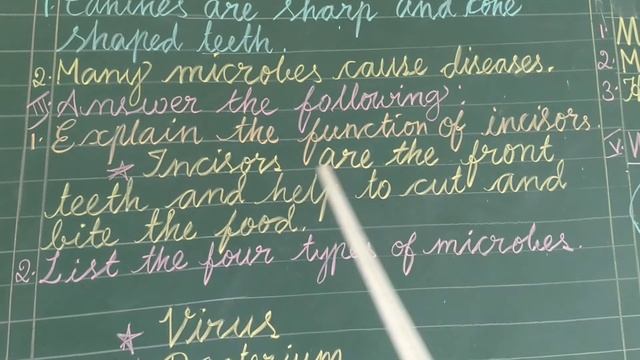 1. Canines are sharp and cone
shaped teeth.
2. Many microbes cause diseases.
III. Answer the following:
1. Explain the function of incisors.
Incisors are the front
teeth and help to cut and
bite the food.
2. List the four types of microbes.
Virus
Bacterium
1. M
2. M
3.
V.